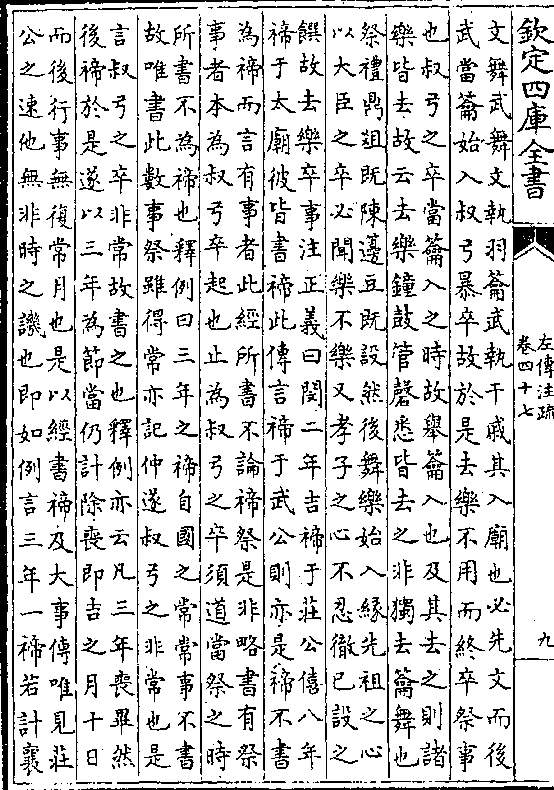 欽定四庫全書
左傳注疏
卷四十七
九
文舞武舞文執羽籥武執干戚其入廟也必先文而後
武當籥始入叔弓暴卒故於是去樂不用而終卒祭事
也叔弓之卒當籥入之時故舉籥入也及其去之則諸
樂皆去故云去樂鐘鼓管磬悉皆去之非獨去籥舞也
祭禮鼎俎既陳籩豆既設然後舞樂始入緣先祖之心
以大臣之卒必聞樂不樂又孝子之心不忍徹已設之
饌故去樂卒事注正義曰閔二年吉禘于莊公僖八年
禘于太廟彼皆書禘此傳言禘于武公則亦是禘不書
為禘而言有事者此經所書不論禘祭是非略書有祭
事者本為叔弓卒起也止為叔弓之卒須道當祭之時
所書不為禘也釋例曰三年之禘自國之常常事不書
故唯書此數事祭雖得常亦記仲遂叔弓之非常也是
言叔弓之卒非常故書之也釋例亦云凡三年喪畢然
後禘於是遂以三年為節當仍計除喪即吉之月十日
而後行事無復常月也是以經書禘及大事傳唯見莊
公之速他無非時之譏也即如例言三年一禘若計襄